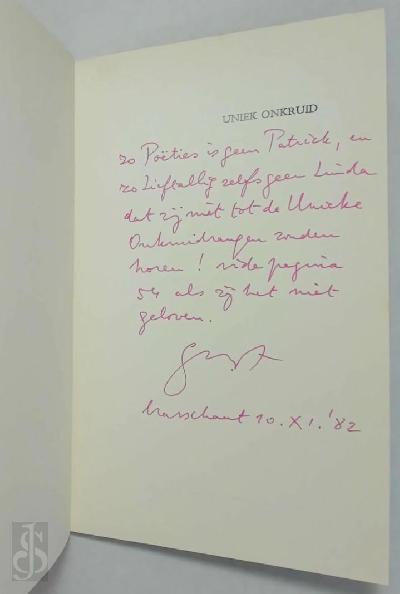 UNIEK ONKRUID
zo Poëties is geen Patrick, en
zo Lieftallig zelfs geen Linda
dat zij niet tot de Unieke
Onkruidrangen zouden
horen! vide pagina
54 als zij het niet
geloven.
Brasschaat 10.XI.'82